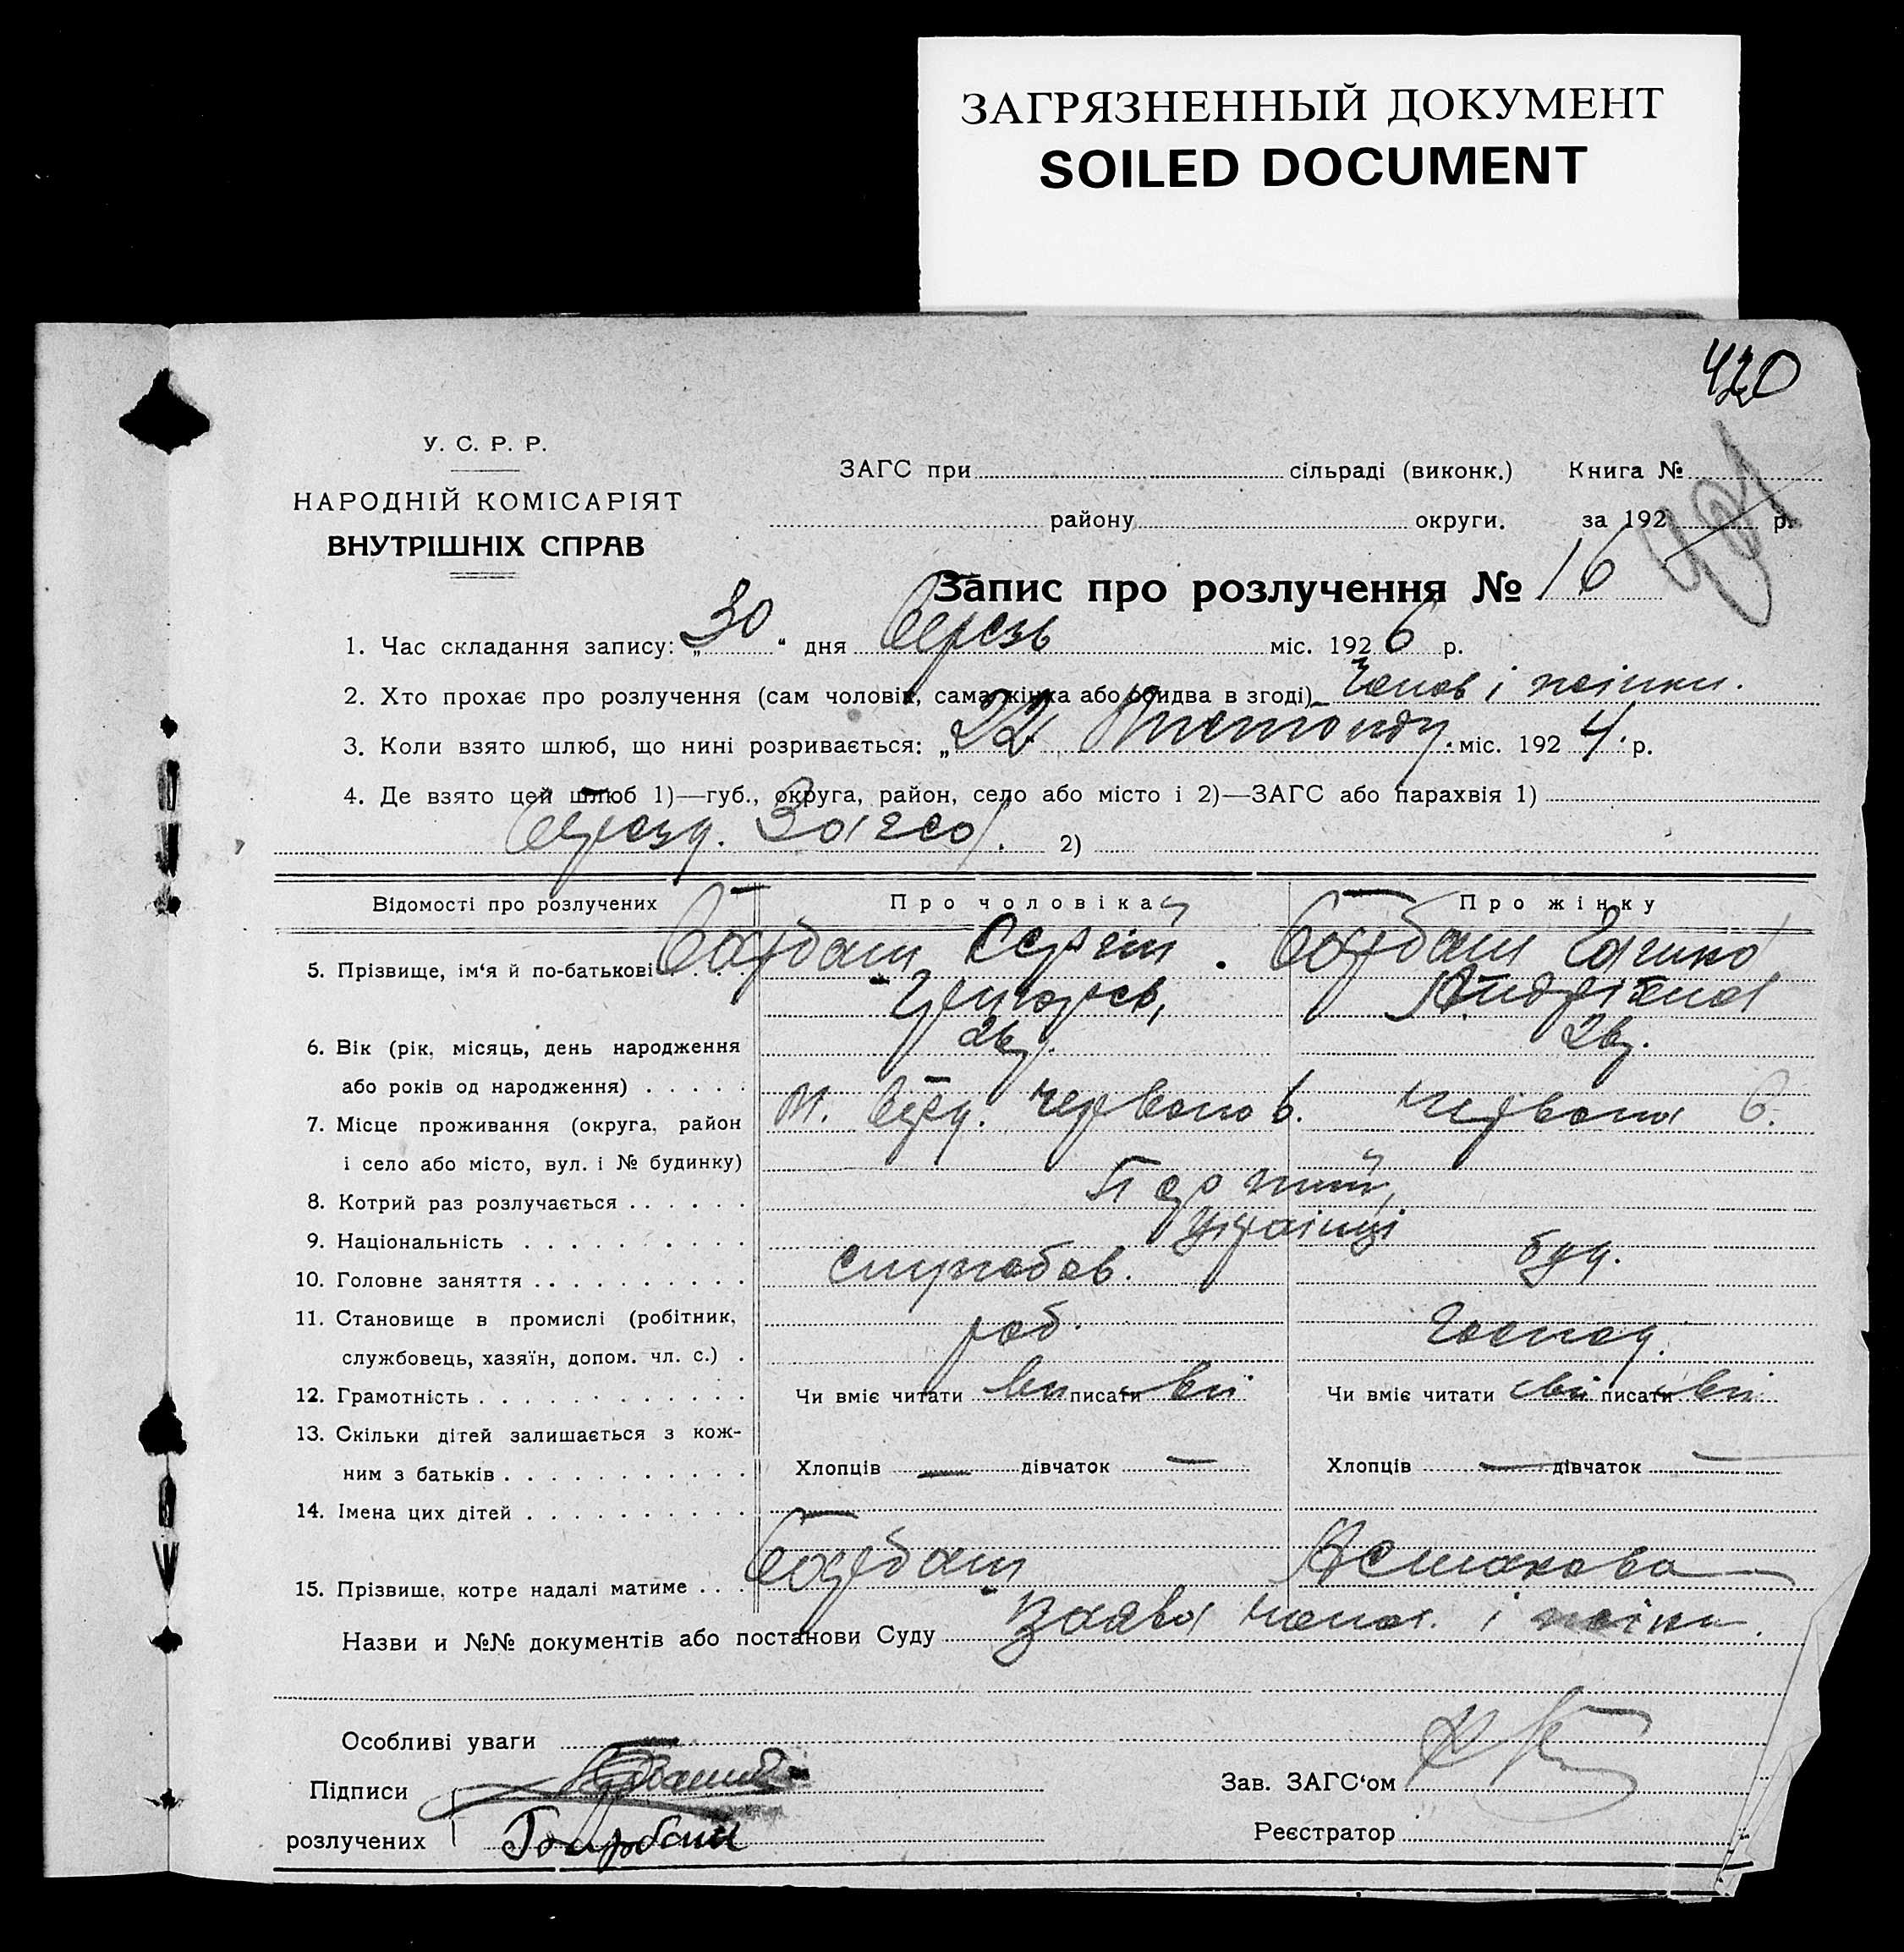 ЗАГРЯЗНЕННЫЙ ДОКУМЕНТ
SOILED DOCUMENT
420
У. С. Р. Р.
НАРОДНІЙ КОМІСАРІЯТ
ВНУТРІШНІХ СПРАВ
ЗАГС при сільраді (виконк.) Книга №
району округи. за 192 р.
Запис про розлучення № 16
1. Час складання запису: „30“ дня Березь міс. 1926 р.
2. Хто прохає про розлучення (сам чоловік, сама жінка або обидва в згоді) Чолов і жінки.
3. Коли взято шлюб, що нині розривається: „22“ міс. 1924 р.
4. Де взято цей шлюб 1)—губ., округа, район, село або місто і 2)—ЗАГС або парахвія 1)
Загсо 2)
Відомості про розлучених Про чоловіка Про жінку
5. Прізвище, ім‘я й по-батькові Барбаш Сергій Барбаш
Григорьев, Андріевна
6. Вік (рік, місяць, день народження 26
або років од народження)
7. Місце проживання (округа, район м. Червоно 6. Червона 6.
і село або місто, вул. і № будинку)
8. Котрий раз розлучається Перший,
9. Національність Українці
10. Головне заняття службов.
11. Становище в промислі (робітник, роб. Господ.
службовець, хазяїн, допом. чл. с.)
12. Грамотність Чи вміє читати вм писати вм Чи вміє читати вм писати вм
13. Скільки дітей залишається з кож-
ним з батьків Хлопців — дівчаток — Хлопців — дівчаток —
14. Імена цих дітей
15. Прізвище, котре надалі матиме Барбаш Асмакова
Назви и №№ документів або постанови Суду Заява чолов. і жінк.
Особливі уваги
Підписи Зав. ЗАГС‘ом
розлучених Барбаш Реєстратор